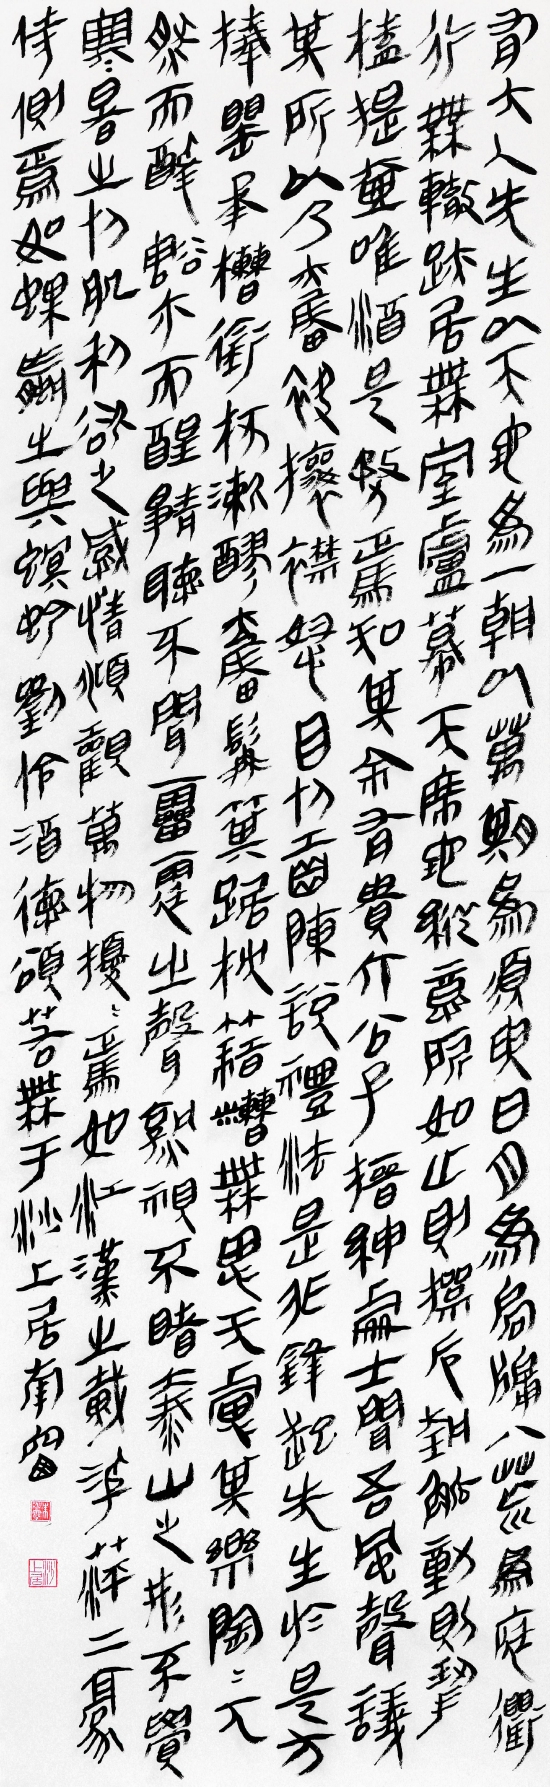 有大人先生以天地為一朝以萬期為須臾日月為扃牖八荒為庭衢
行無轍跡居無室廬幕天席地縱意所如止則操卮執觚動則挈
榼提壺唯酒是務焉知其余有貴介公子搢紳處士聞吾風聲議
其所以乃奮袂攘襟怒目切齒陳說禮法是非鋒起先生於是方
捧罌承槽銜杯漱醪奮髯箕踞枕藉糟無思无慮其樂陶〻兀
然而醉豁尒而醒靜聽不聞雷霆之聲孰視不睹泰山之形不覺
寒暑之切肌利欲之感情俯觀萬物擾〻焉如江漢之載浮萍二豪
侍側焉如蜾蠃之與螟蛉劉伶酒德頌若無于沙上居南窗
沙上居